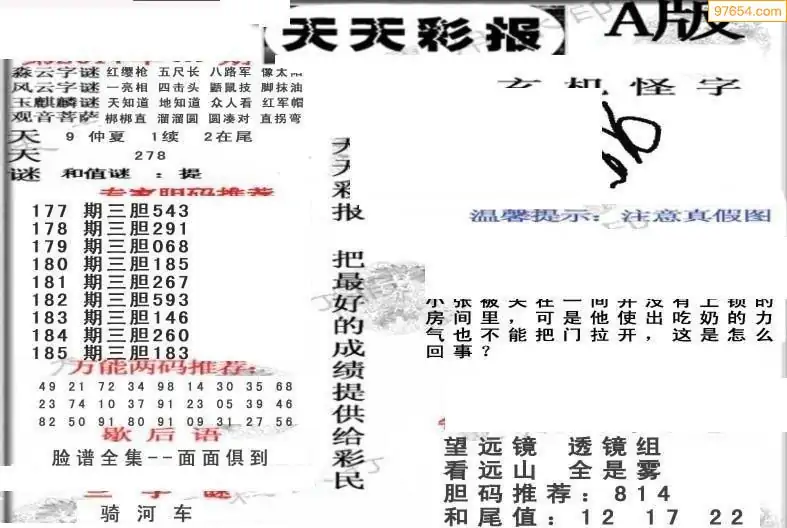 97654.com
天天彩报
A版
淼云字谜 红缨枪 五尺长 八路军 像太阳
风云字谜 一亮相 四击头 鼯鼠技 脚抹油
玉麒麟谜 天知道 地知道 众人看 红军帽
观音菩萨 梆梆直 溜溜圆 圆凑对 直拐弯
天 9 仲夏 1续 2在尾
天 278
谜 和值谜 : 提
专家胆码推荐
177 期三胆543
178 期三胆291
179 期三胆068
180 期三胆185
181 期三胆267
182 期三胆593
183 期三胆146
184 期三胆260
185 期三胆183
万能两码推荐:
49 21 72 34 98 14 30 35 68
23 74 10 37 91 23 05 39 46
82 50 91 80 91 09 31 27 56
歇后语
脸谱全集--面面俱到
三字谜
骑河车
天天彩报 把最好的成绩提供给彩民
玄机怪字
温馨提示: 注意真假图
小张被关在一间并没有上锁的
房间里，可是他使出吃奶的力
气也不能把门拉开，这是怎么
回事？
望远镜 透镜组
看远山 全是雾
胆码推荐: 814
和尾值: 12 17 22